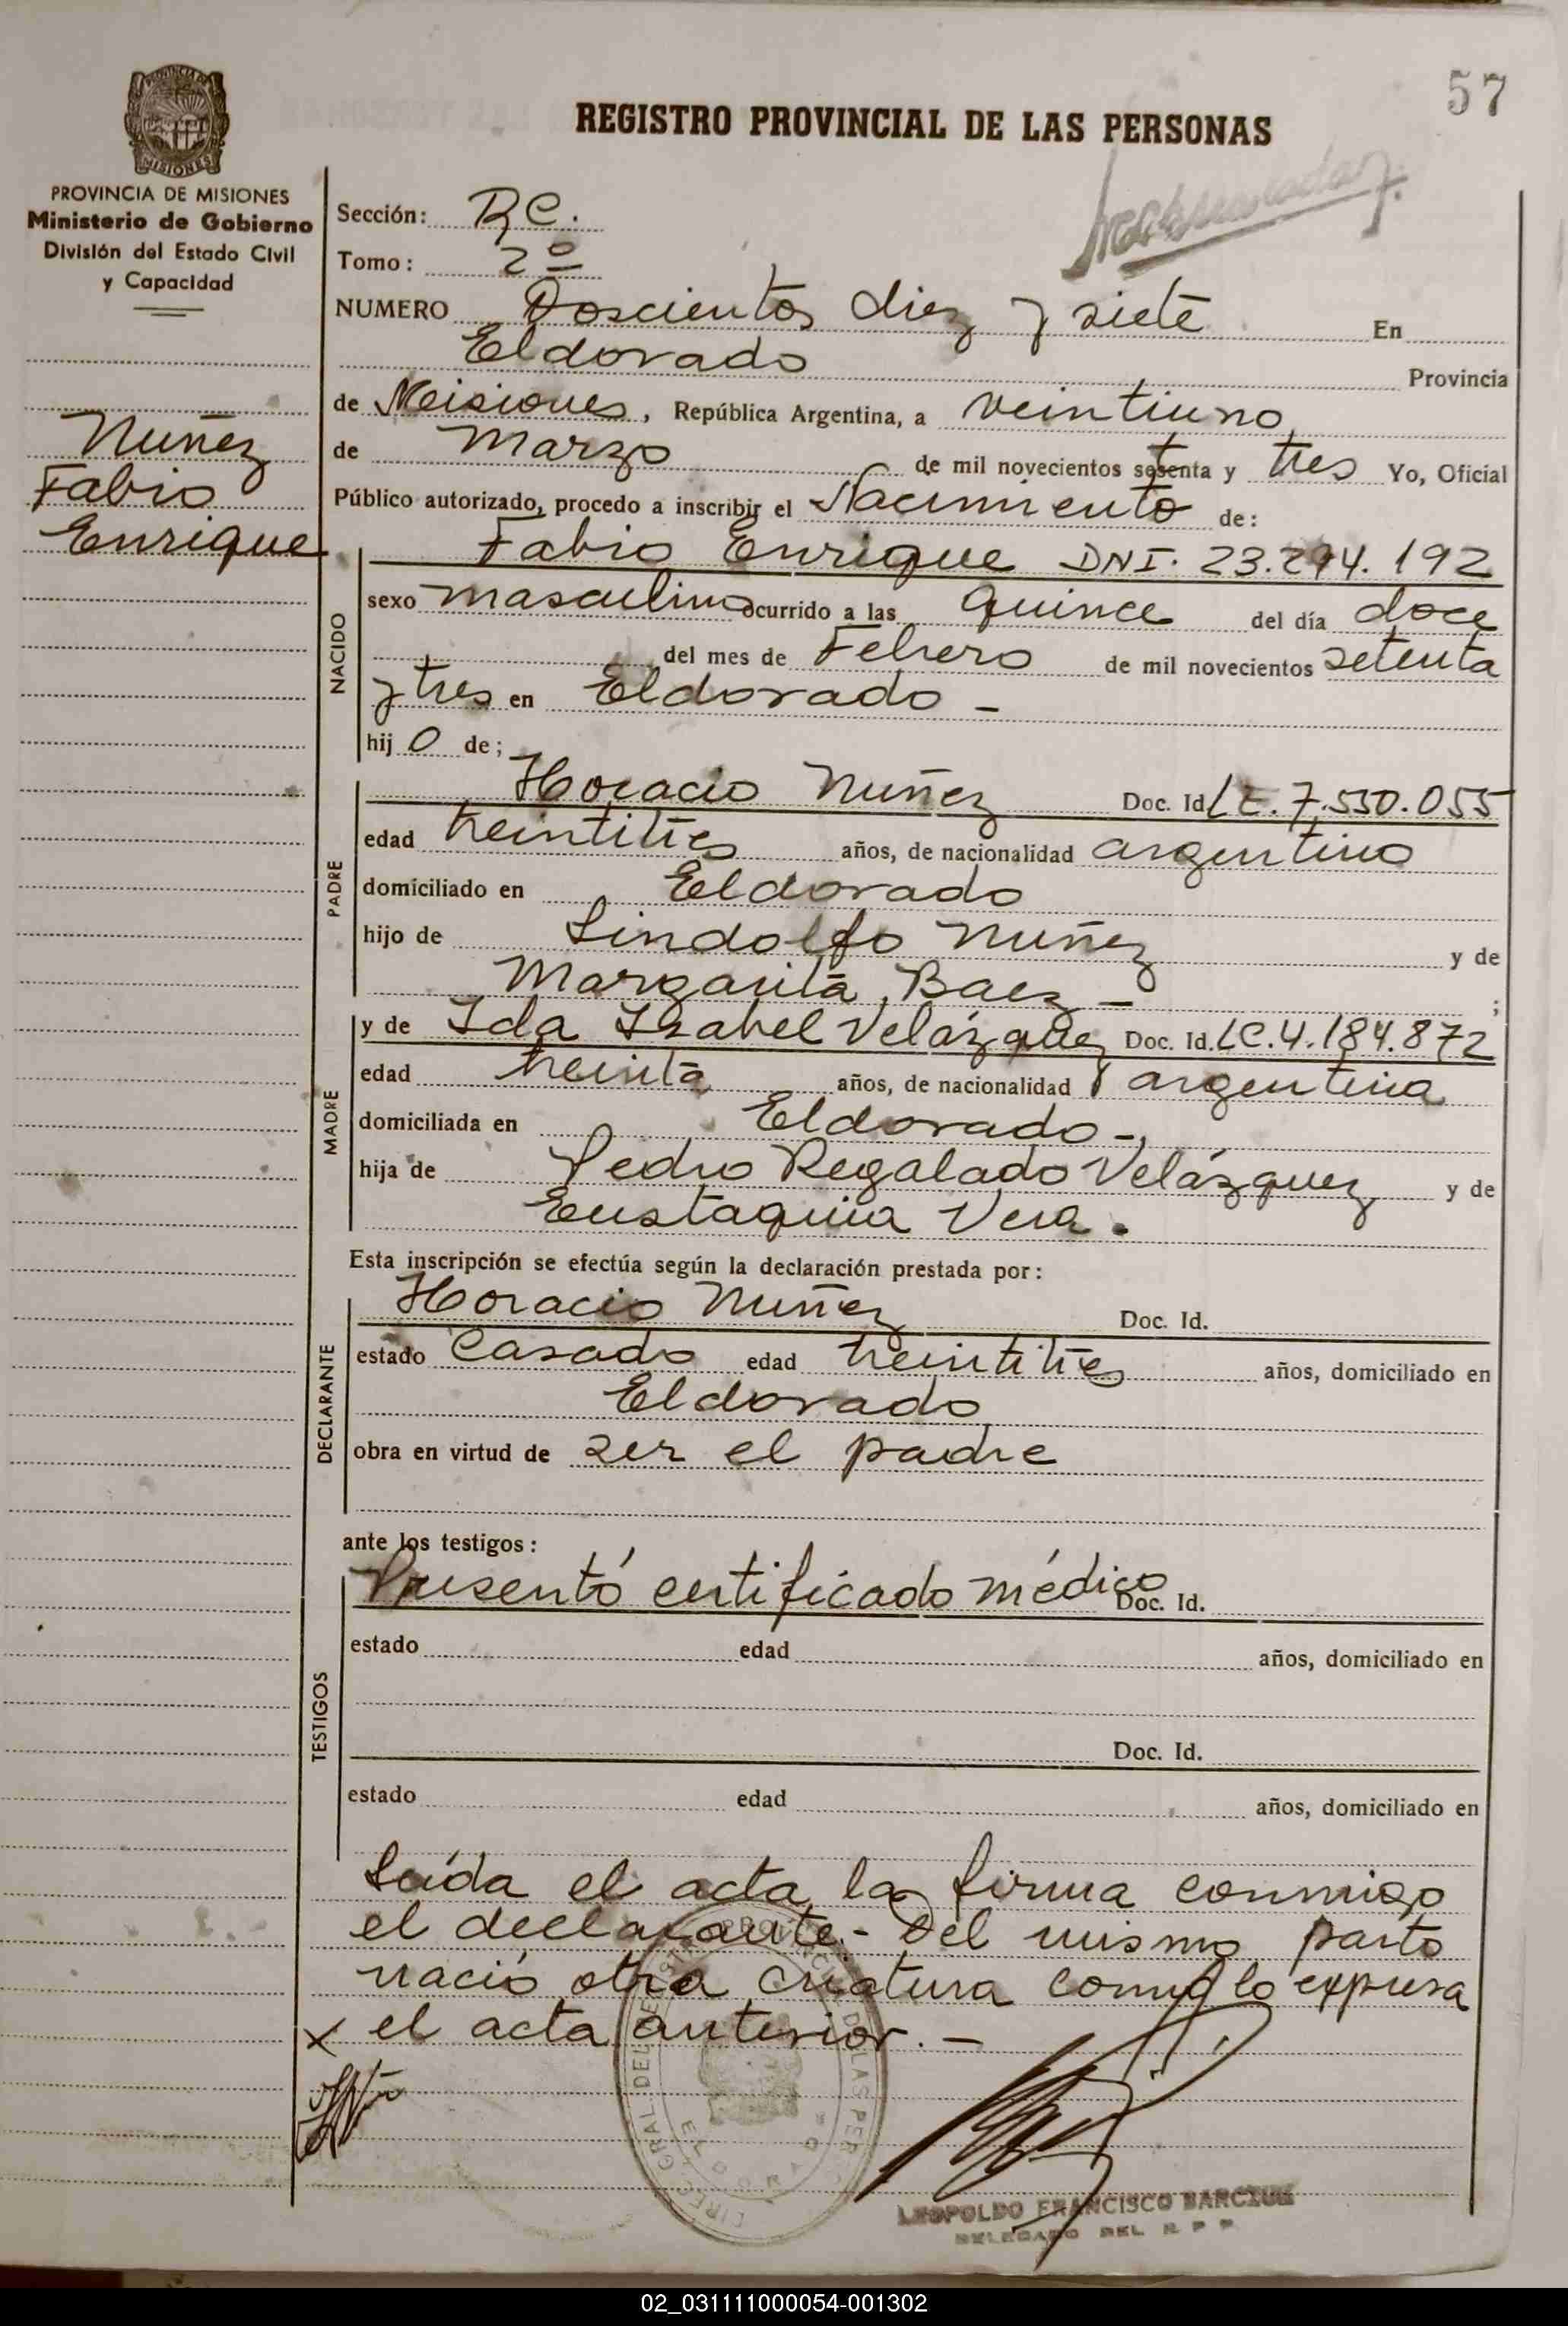 57
REGISTRO PROVINCIAL DE LAS PERSONAS
PROVINCIA DE MISIONES
Ministerio de Gobierno
División del Estado Civil
y Capacidad
Nuñez
Fabio
Enrique
Sección: RC.
Tomo: 2º
NUMERO Doscientos diez y siete En
Eldorado Provincia
de Misiones, República Argentina, a veintiuno
de Marzo de mil novecientos setenta y tres Yo, Oficial
Público autorizado, procedo a inscribir el Nacimiento de:
NACIDO
Fabio Enrique DNI. 23.294.192
sexo masculino ocurrido a las quince del día doce
del mes de Febrero de mil novecientos setenta
y tres en Eldorado -
hij o de;
PADRE
Horacio Nuñez Doc. Id LE. 7.550.055
edad treintitres años, de nacionalidad argentino
domiciliado en Eldorado
hijo de Lindolfo Nuñez y de
Margarita Baez - ;
MADRE
y de Ida Isabel Velázquez Doc. Id. LC. 4.184.872
edad treinta años, de nacionalidad argentina
domiciliada en Eldorado -.
hija de Pedro Regalado Velázquez y de
Eustaquia Vera.
Esta inscripción se efectúa según la declaración prestada por:
DECLARANTE
Horacio Nuñez Doc. Id.
estado Casado edad treintitres años, domiciliado en
Eldorado
obra en virtud de ser el padre
ante los testigos:
TESTIGOS
Presentó certificado médico Doc. Id.
estado edad años, domiciliado en
Doc. Id.
estado edad años, domiciliado en
Leída el acta, la firma conmigo
el declarante.- Del mismo parto
nació otra criatura como lo expresa
x el acta anterior. -
LEOPOLDO FRANCISCO BARCZUK
DELEGADO DEL R P P
02_031111000054-001302